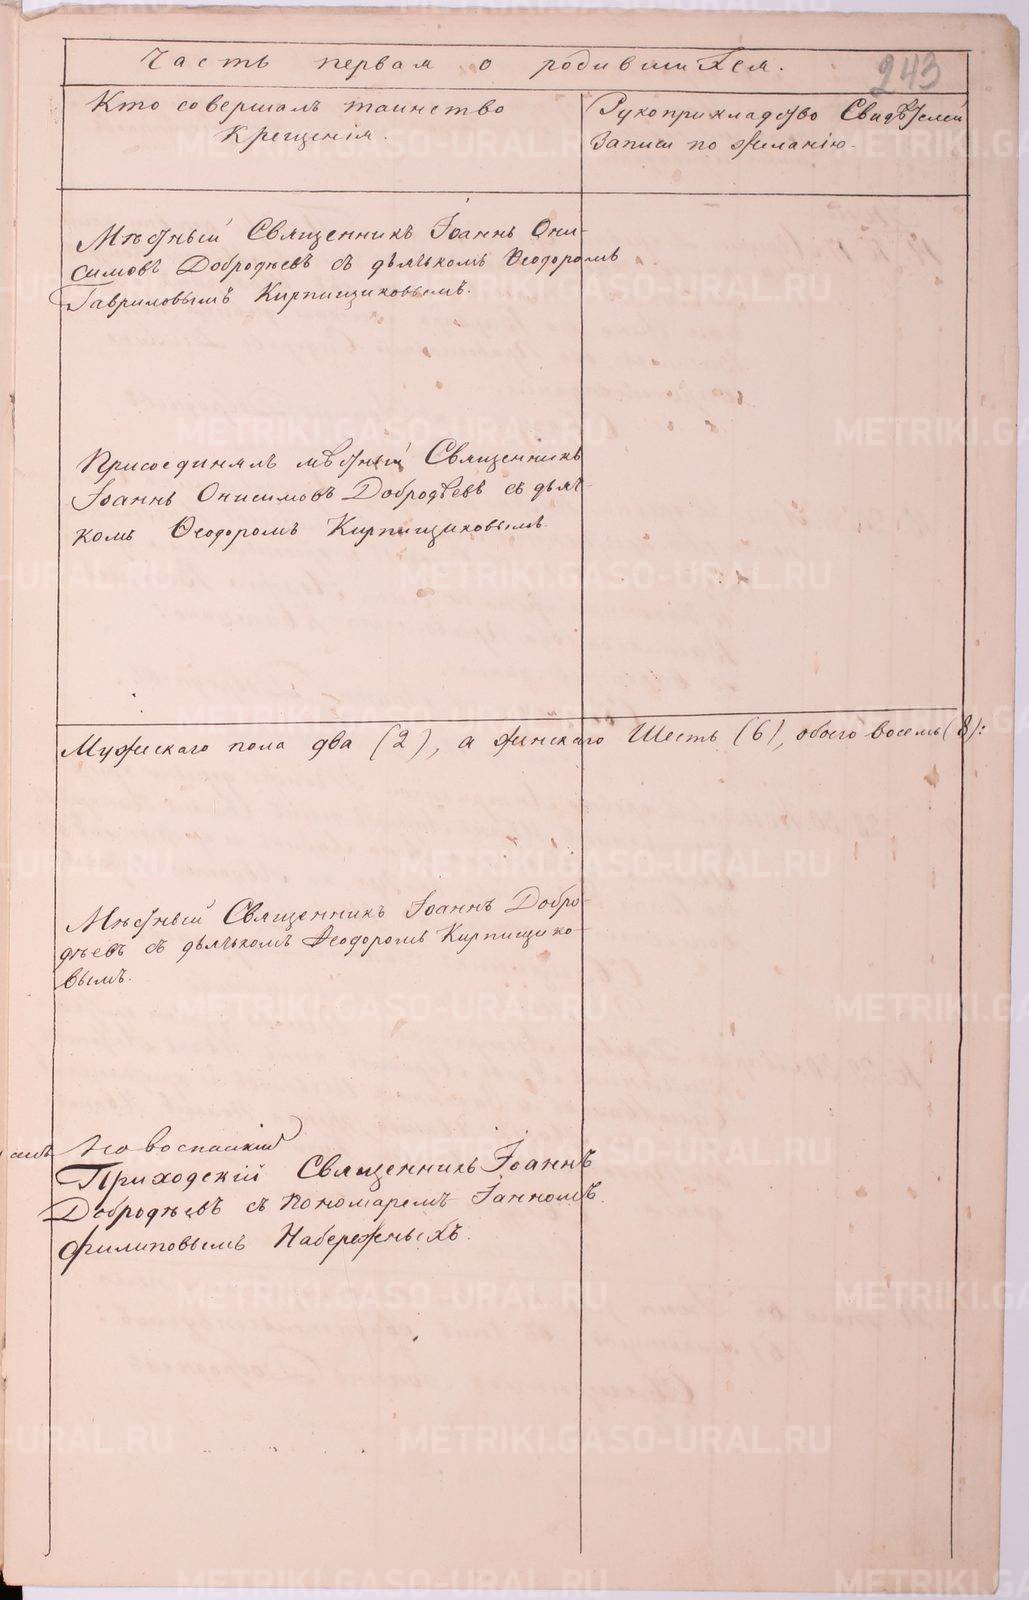 Часть первая о родившихся.
243
Кто совершалъ таинство
Крещенія.
Рукоприкладство Свидѣтелей
Записи по желанію.
Мѣстный Священникъ Іоаннъ Они-
симовъ Добродѣевъ съ дьячкомъ Ѳеодоромъ
Гавриловымъ Кирпищиковымъ.
Присоединялъ мѣстный Священникъ
Іоаннъ Онисимовъ Добродѣевъ съ дьяч-
комъ Ѳеодоромъ Кирпищиковымъ
Мужескаго пола два (2), а женскаго Шесть (6), обоего восемь (8):
Мѣстный Священникъ Іоаннъ Добро-
дѣевъ съ дьячкомъ Ѳеодоромъ Кирпищико-
вымъ.
Новоспаскій
Приходскій Священникъ Іоаннъ
Добродѣевъ съ Пономаремъ Іанномъ
Филиповымъ Набережныхъ.
METRIKI.GASO-URAL.RU